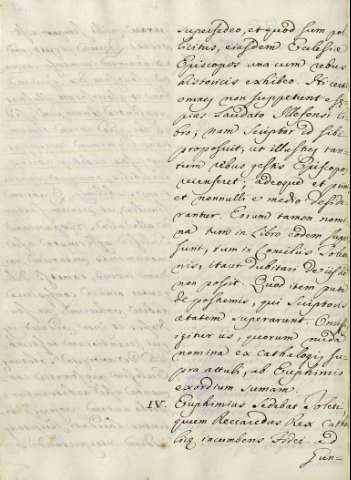 supersedeo, et quod sum pol-
licitus, eiusdem Ecclesiæ
Episcopos una cum rebus
historicis exhibeo. Hi certe
omnes non suppetunt e
laudato Ildefonsi li-
bro; nam Scriptor id sibi
proposuit, ut illustres tan-
tum rebus gestis Episcopos
recenseret; adeoque et primi
et nonnulli e medio deside-
rantur. Eorum tamen nomi-
na tum in Libro eodem
sunt, tum in Conciliis Tole-
nis, itaut dubitari de iisdem
non possit. Quod item puta
de postremis, qui Scriptoris
ætatem superarunt. Omissis
igitur iis, quorum nuda
nomina ex cathalogis su-
pra attuli, ab Euphimio
exordium sumam.
IV. Euphimius sedebat Toleti,
quem Reccaredus Rex Catho-
licæ incumbens Fidei ad
Jun-